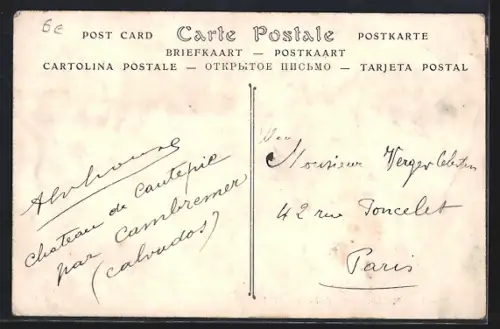 6€
POST CARD Carte Postale POSTKARTE
BRIEFKAART — POSTKAART
CARTOLINA POSTALE — ОТКРЫТОЕ ПИСЬМО — TARJETA POSTAL
Alphonse
Chateau de Cantepie
par Cambremer
(Calvados)
Monsieur Verger
42 rue Poncelet
Paris